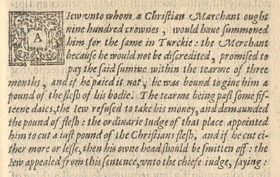 A Iew vnto whom a Christian Marchant ought
nine hundred crownes, would haue summoned
him for the same in Turckie: the Merchant
because he would not be discredited, promised to
pay the said summe within the tearme of three
months, and if he paied it not, he was bound to giue him a
pound of the flesh of his bodie. The tearme being past some fif-
teene daies, the Iew refused to take his money, and demaunded
the pound of flesh: the ordinarie Iudge of that place appointed
him to cut a iust pound of the Christians flesh, and if he cut ei-
ther more or lesse, then his owne head should be smitten off: the
Iew appealed from this sentence, vnto the chiefe iudge, saying: